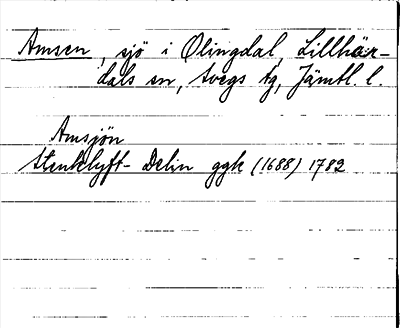 Amsen, sjö i Olingdal, Lillhär-
dals sn, Svegs tg, Jämtl. l.
Amsjön
Stenklyft- Delin ggk (1688) 1782